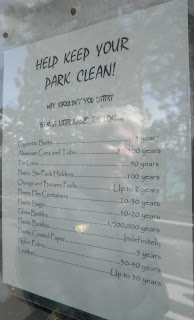 HELP KEEP YOUR
PARK CLEAN!
WHY SHOULDN'T YOU LITTER?
Cigarette Butts 1-5 year
Aluminum Cans and Tabs 500 years
Tin Cans 50 years
Plastic Six-Pack Holders 100 years
Orange and Banana Peels Up to 2 years
Plastic Film Containers 20-30 years
Plastic Bags 10-20 years
Glass Bottles 1,000,000 years
Plastic Bottles Indefinitely
Plastic Coated Paper 5 years
Nylon Fabric 30-40 years
Leather Up to 50 years